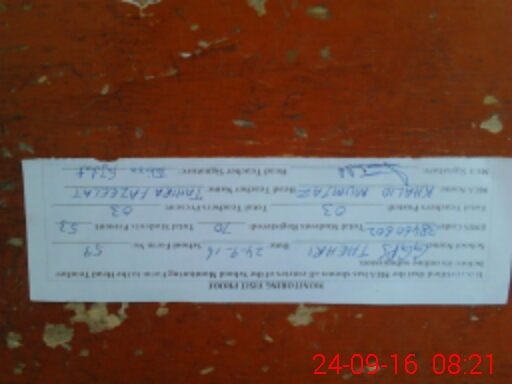 MONITORING VISIT PROOF
It is certified that the MEA has shown all entries of the School Monitoring Form to the Head Teacher
before its online submission
School Name: GGPS THEHRI Date: 24.9.16 School Form No: 59
EMIS Code: 38460602 Total Students Registered: 70 Total Students Present: 53
Total Teachers Posted: 03 Total Teachers Present: 03
MEA Name: KHALID MUMTAZ Head Teacher Name: TAHIRA FAZEELAT
MEA Signature: Head Teacher Signature:
24-09-16 08:21